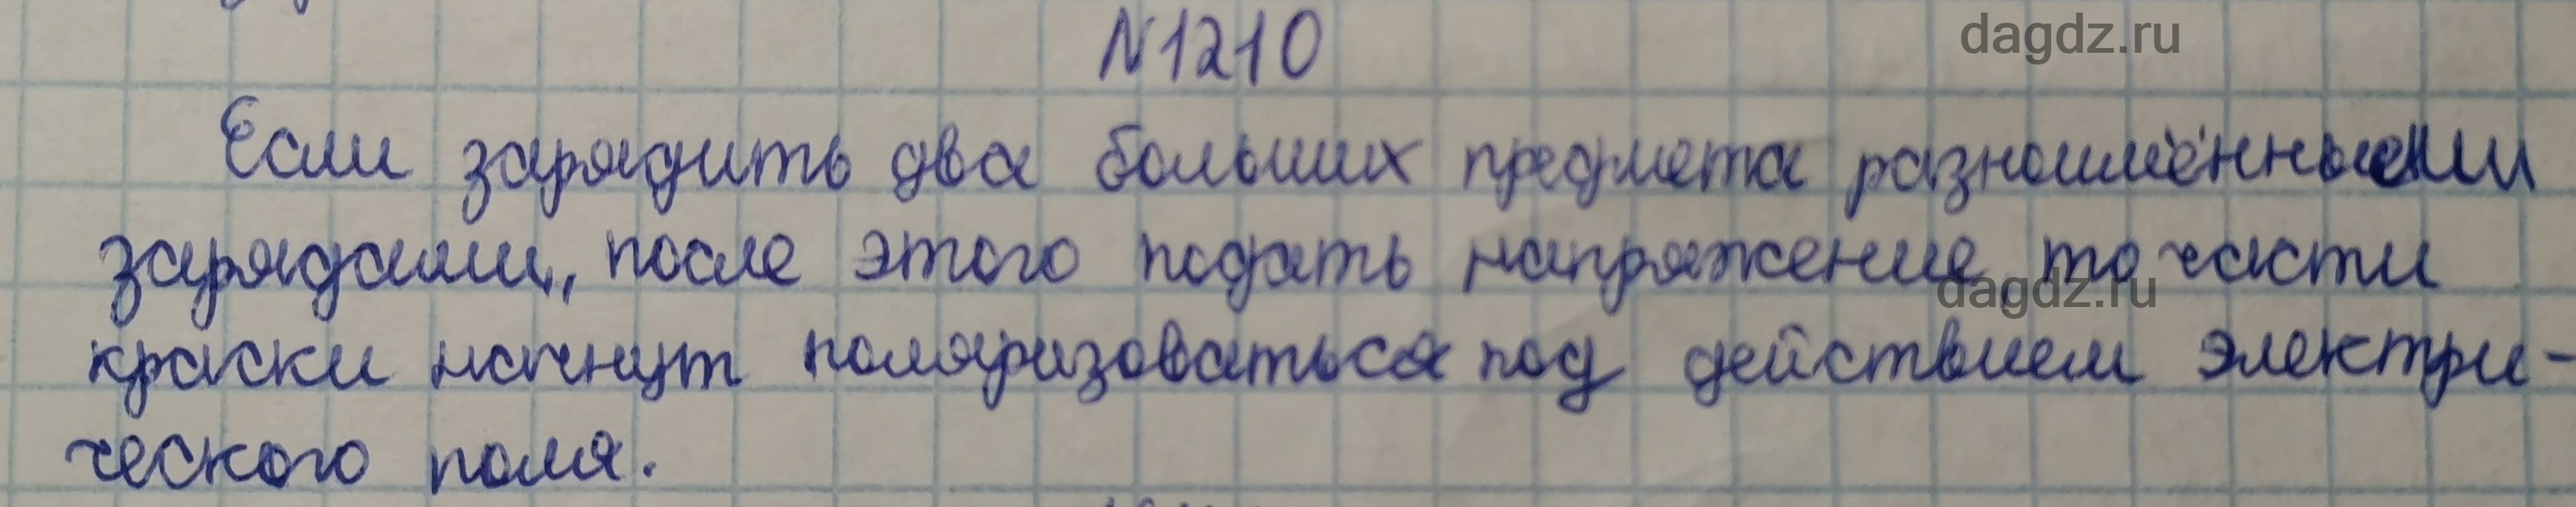 N1210
dagdz.ru
Если зарядить два больших предмета разноимёнными
зарядами, после этого подать напряжение, то части
dagdz.ru
краски начнут поляризоваться под действием электри-
ческого поля.